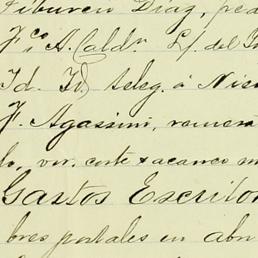 Tiburcio Díaz, pea
F.co A. Caldr. Lj. del Fe
Id. Id. teleg. á Nise
F. Agassini, remesa
do, vir. corte & acarreo m
Gastos Escritor
bres postales en abr